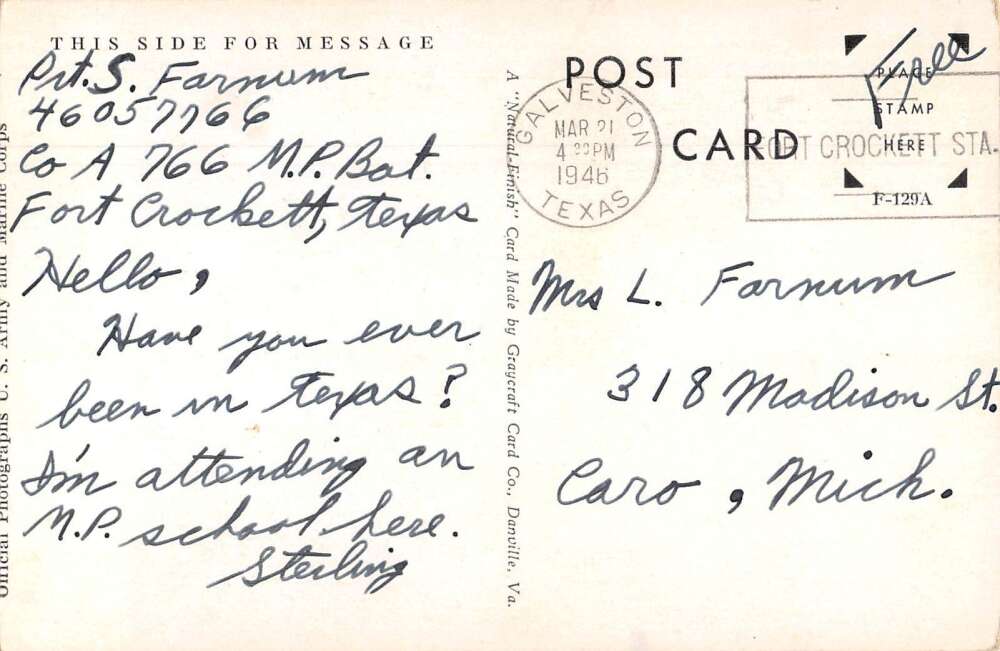 THIS SIDE FOR MESSAGE
Pvt. S. Farnum
46057766
Co A 766 M.P. Bat.
Fort Crockett, Texas
Hello,
Have you ever
been in Texas?
I'm attending an
M.P. school here.
Sterling
Official Photographs U. S. Army and Marine Corps
A "Natural-Finish" Card Made by Graycraft Card Co., Danville, Va.
POST
CARD
GALVESTON
MAR 21
4 PM
1946
TEXAS
Free
PLACE
STAMP
HERE
F-129A
FORT CROCKETT STA.
Mrs L. Farnum
318 Madison St.
Caro, Mich.